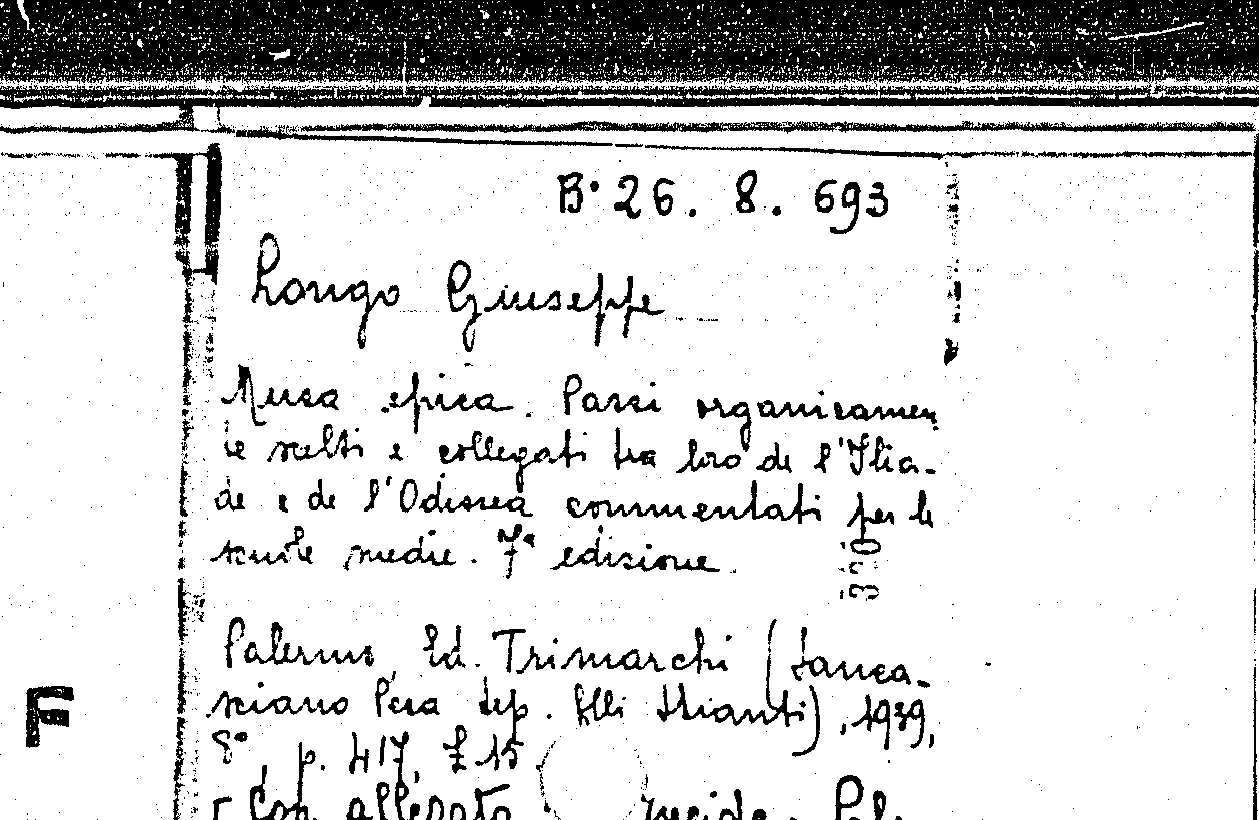 B. 26. 8. 693
Longo Giuseppe
Musa epica. Passi organicamen
te scelti e collegati tra loro de l'Ilia-
de e de l'Odissea commentati per le
scuole medie. 7ª edizione.
310
Palermo, Ed. Trimarchi (Sanca-
sciano Pesa tip. flli Stianti), 1939,
8°, p. 417, £ 15
F
[Con allegato